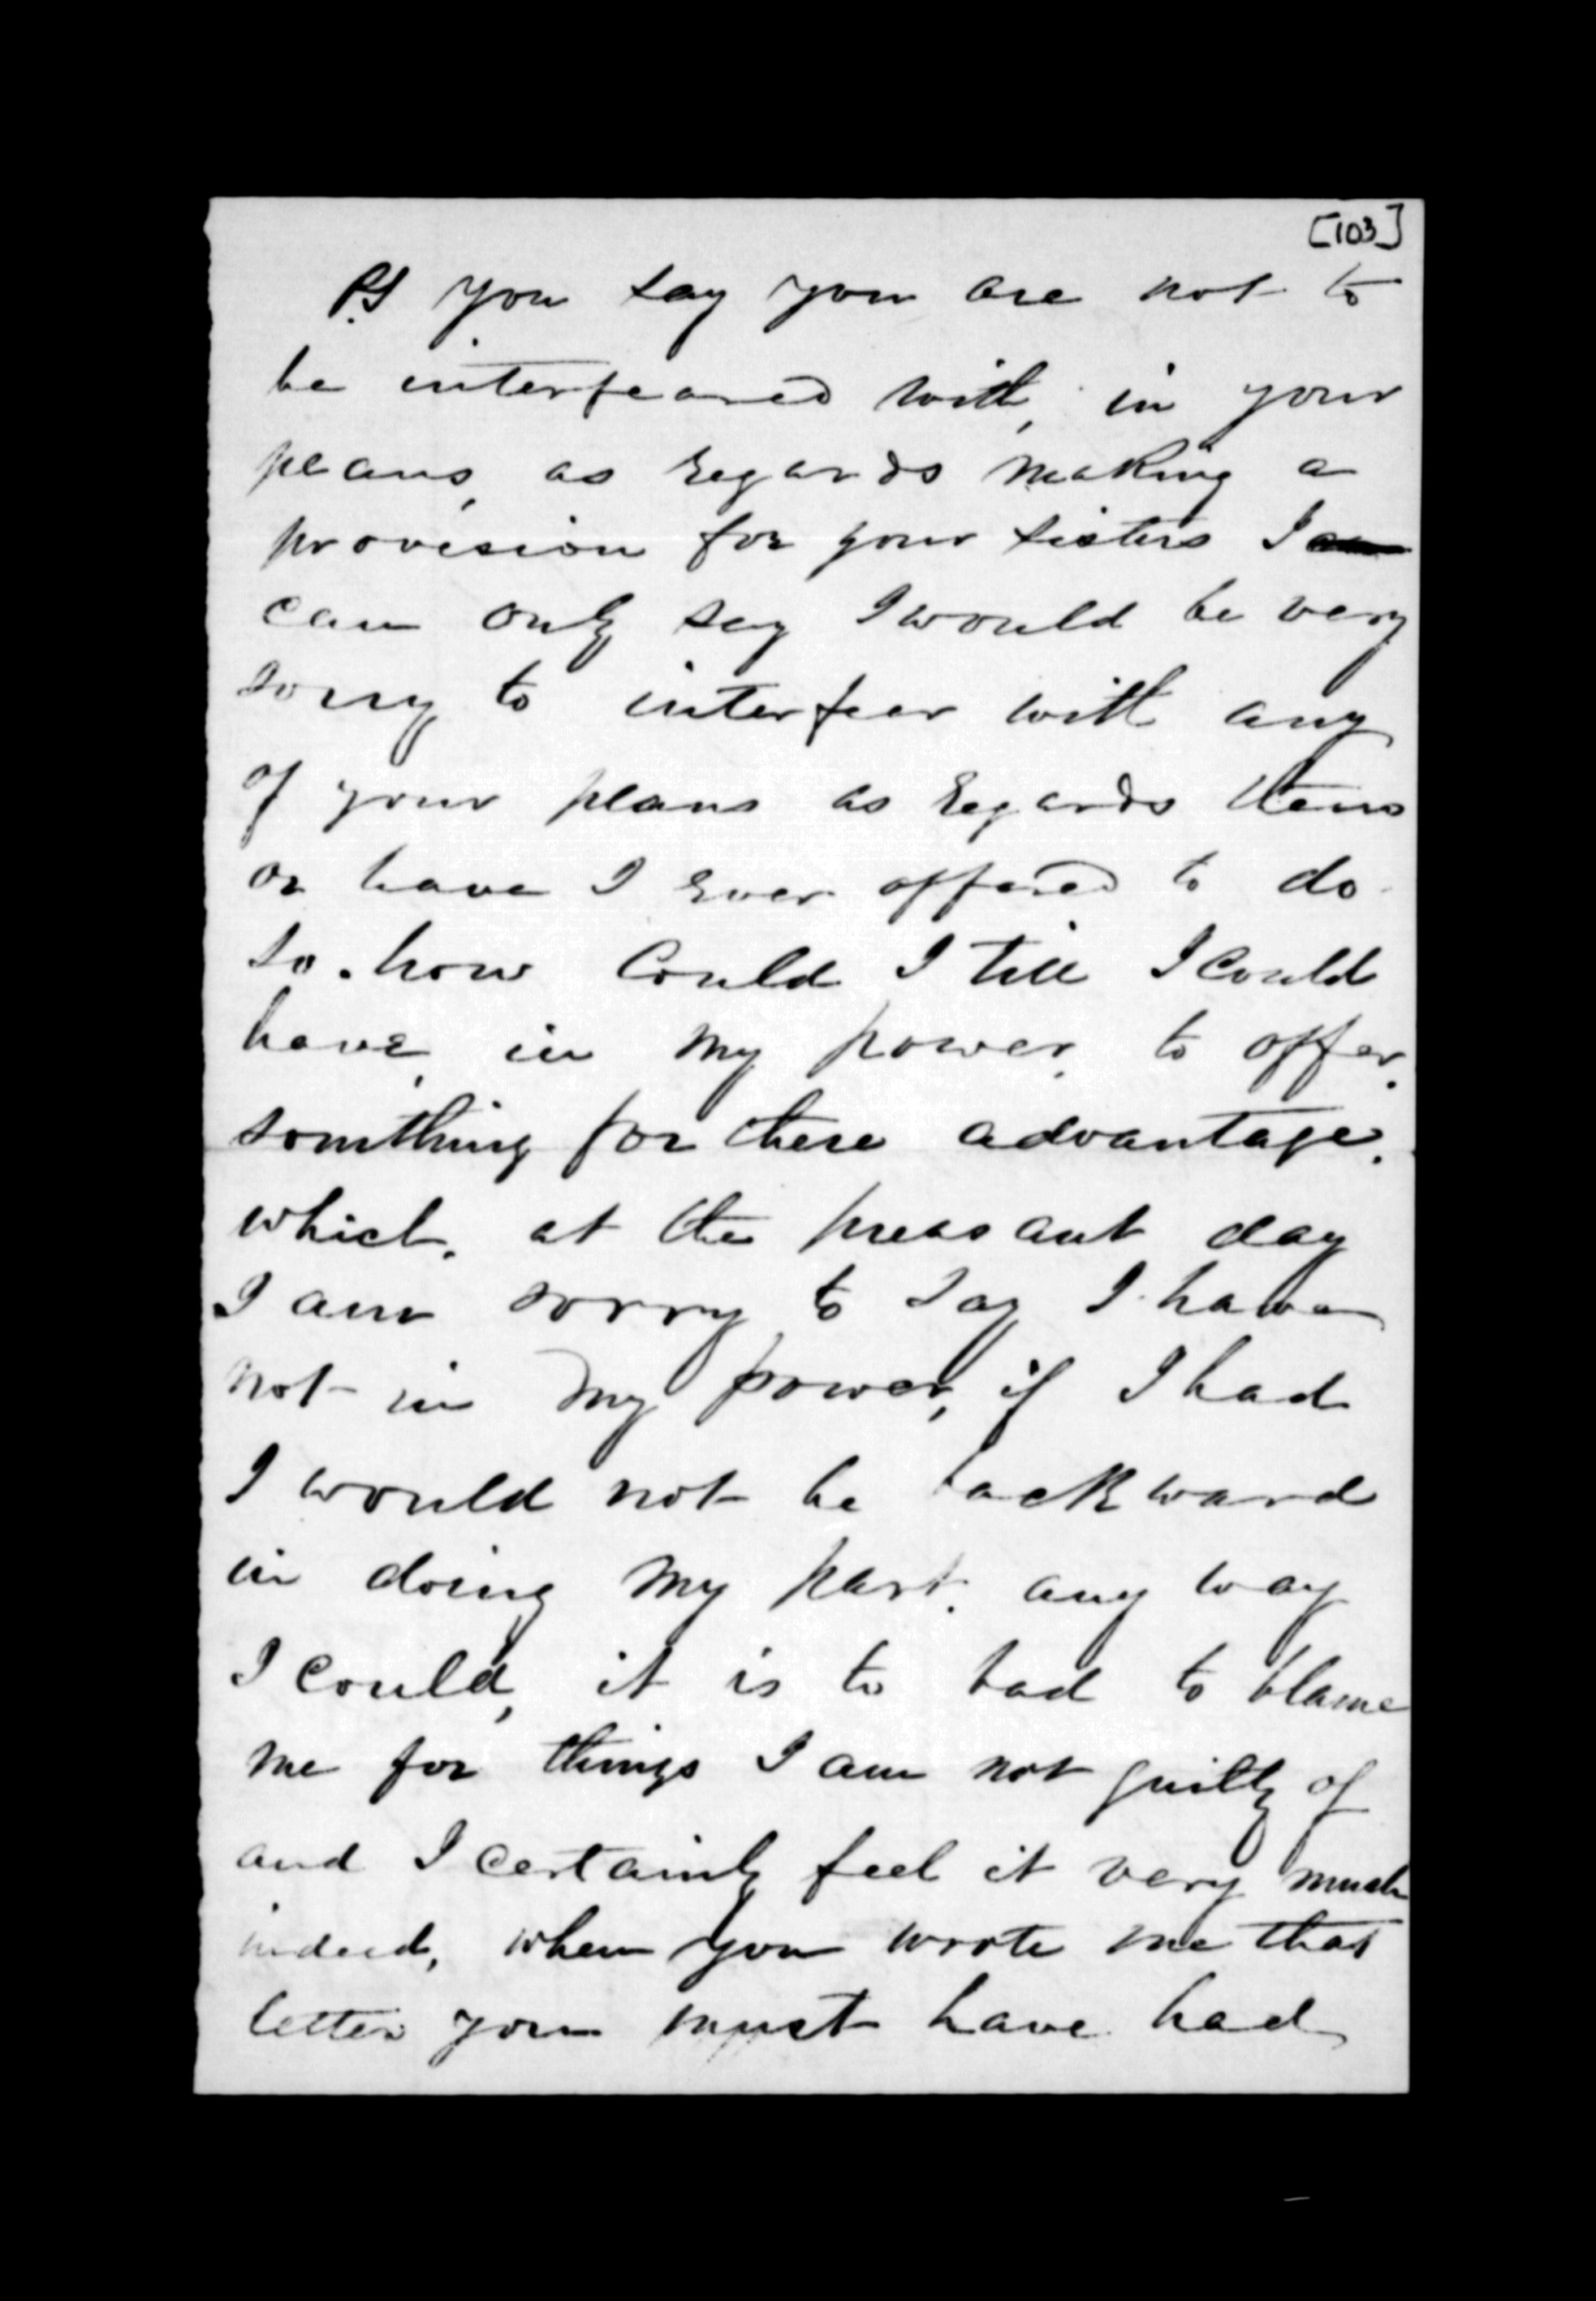 [103]
P.S you say you are not to
be interfeared with, in your
plans, as regards making a
provision for your sisters I
can only say I would be very
sorry to interfear with any
of your plans as regards them
or have I ever offered to do
so. how could I till I could
have, in my power. to offer.
somthing for there advantage.
which. at the preasant day
I am sorry to say I have
not in my power, if I had
I would not be backward
in doing my part. any way
I could, it is to bad to blame
me for things I am not guilty of
and I certainly feel it very much
indeed, when you wrote me that
letter you must have had